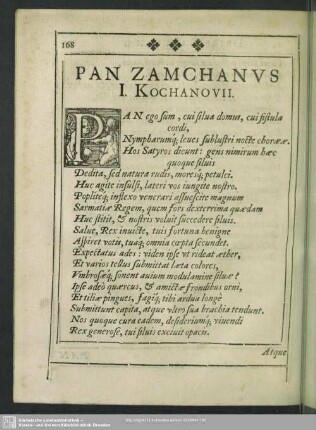 168
PAN ZAMCHANVS
I. KOCHANOVII.
PAN ego sum, cui silua domus, cui fistula
cordi,
Nympharumq́; leues sublustri nocte choreæ.
Hos Satyros dicunt: gens nimirum hæc
quoque siluis
Dedita, sed natura rudis, moresq́; petulci.
Huc agite insulsi, lateri vos iungite nostro.
Popliteq́; inflexo venerari assuescite magnum
Sarmatiæ Regem, quem sors dexterrima quædam
Huc stitit, & nostris voluit succedere siluis.
Salue, Rex inuicte, tuis fortuna benigne
Aspiret votis, tuaq́; omnia cœpta secundet.
Expectatus ades: viden ipse vt rideat æther,
Et varios tellus submittat læta colores,
Vmbrosæq́; sonent auium modulamine siluæ?
Ipse adeò quærcus, & amictæ frondibus orni,
Et tiliæ pingues, fagiq́; tibi ardua longè
Submittunt capita, atque vltro sua brachia tendunt.
Nos quoque cura eadem, desideriumq́; viuendi
Rex generose, tui siluis exciuit opacis.
Atque